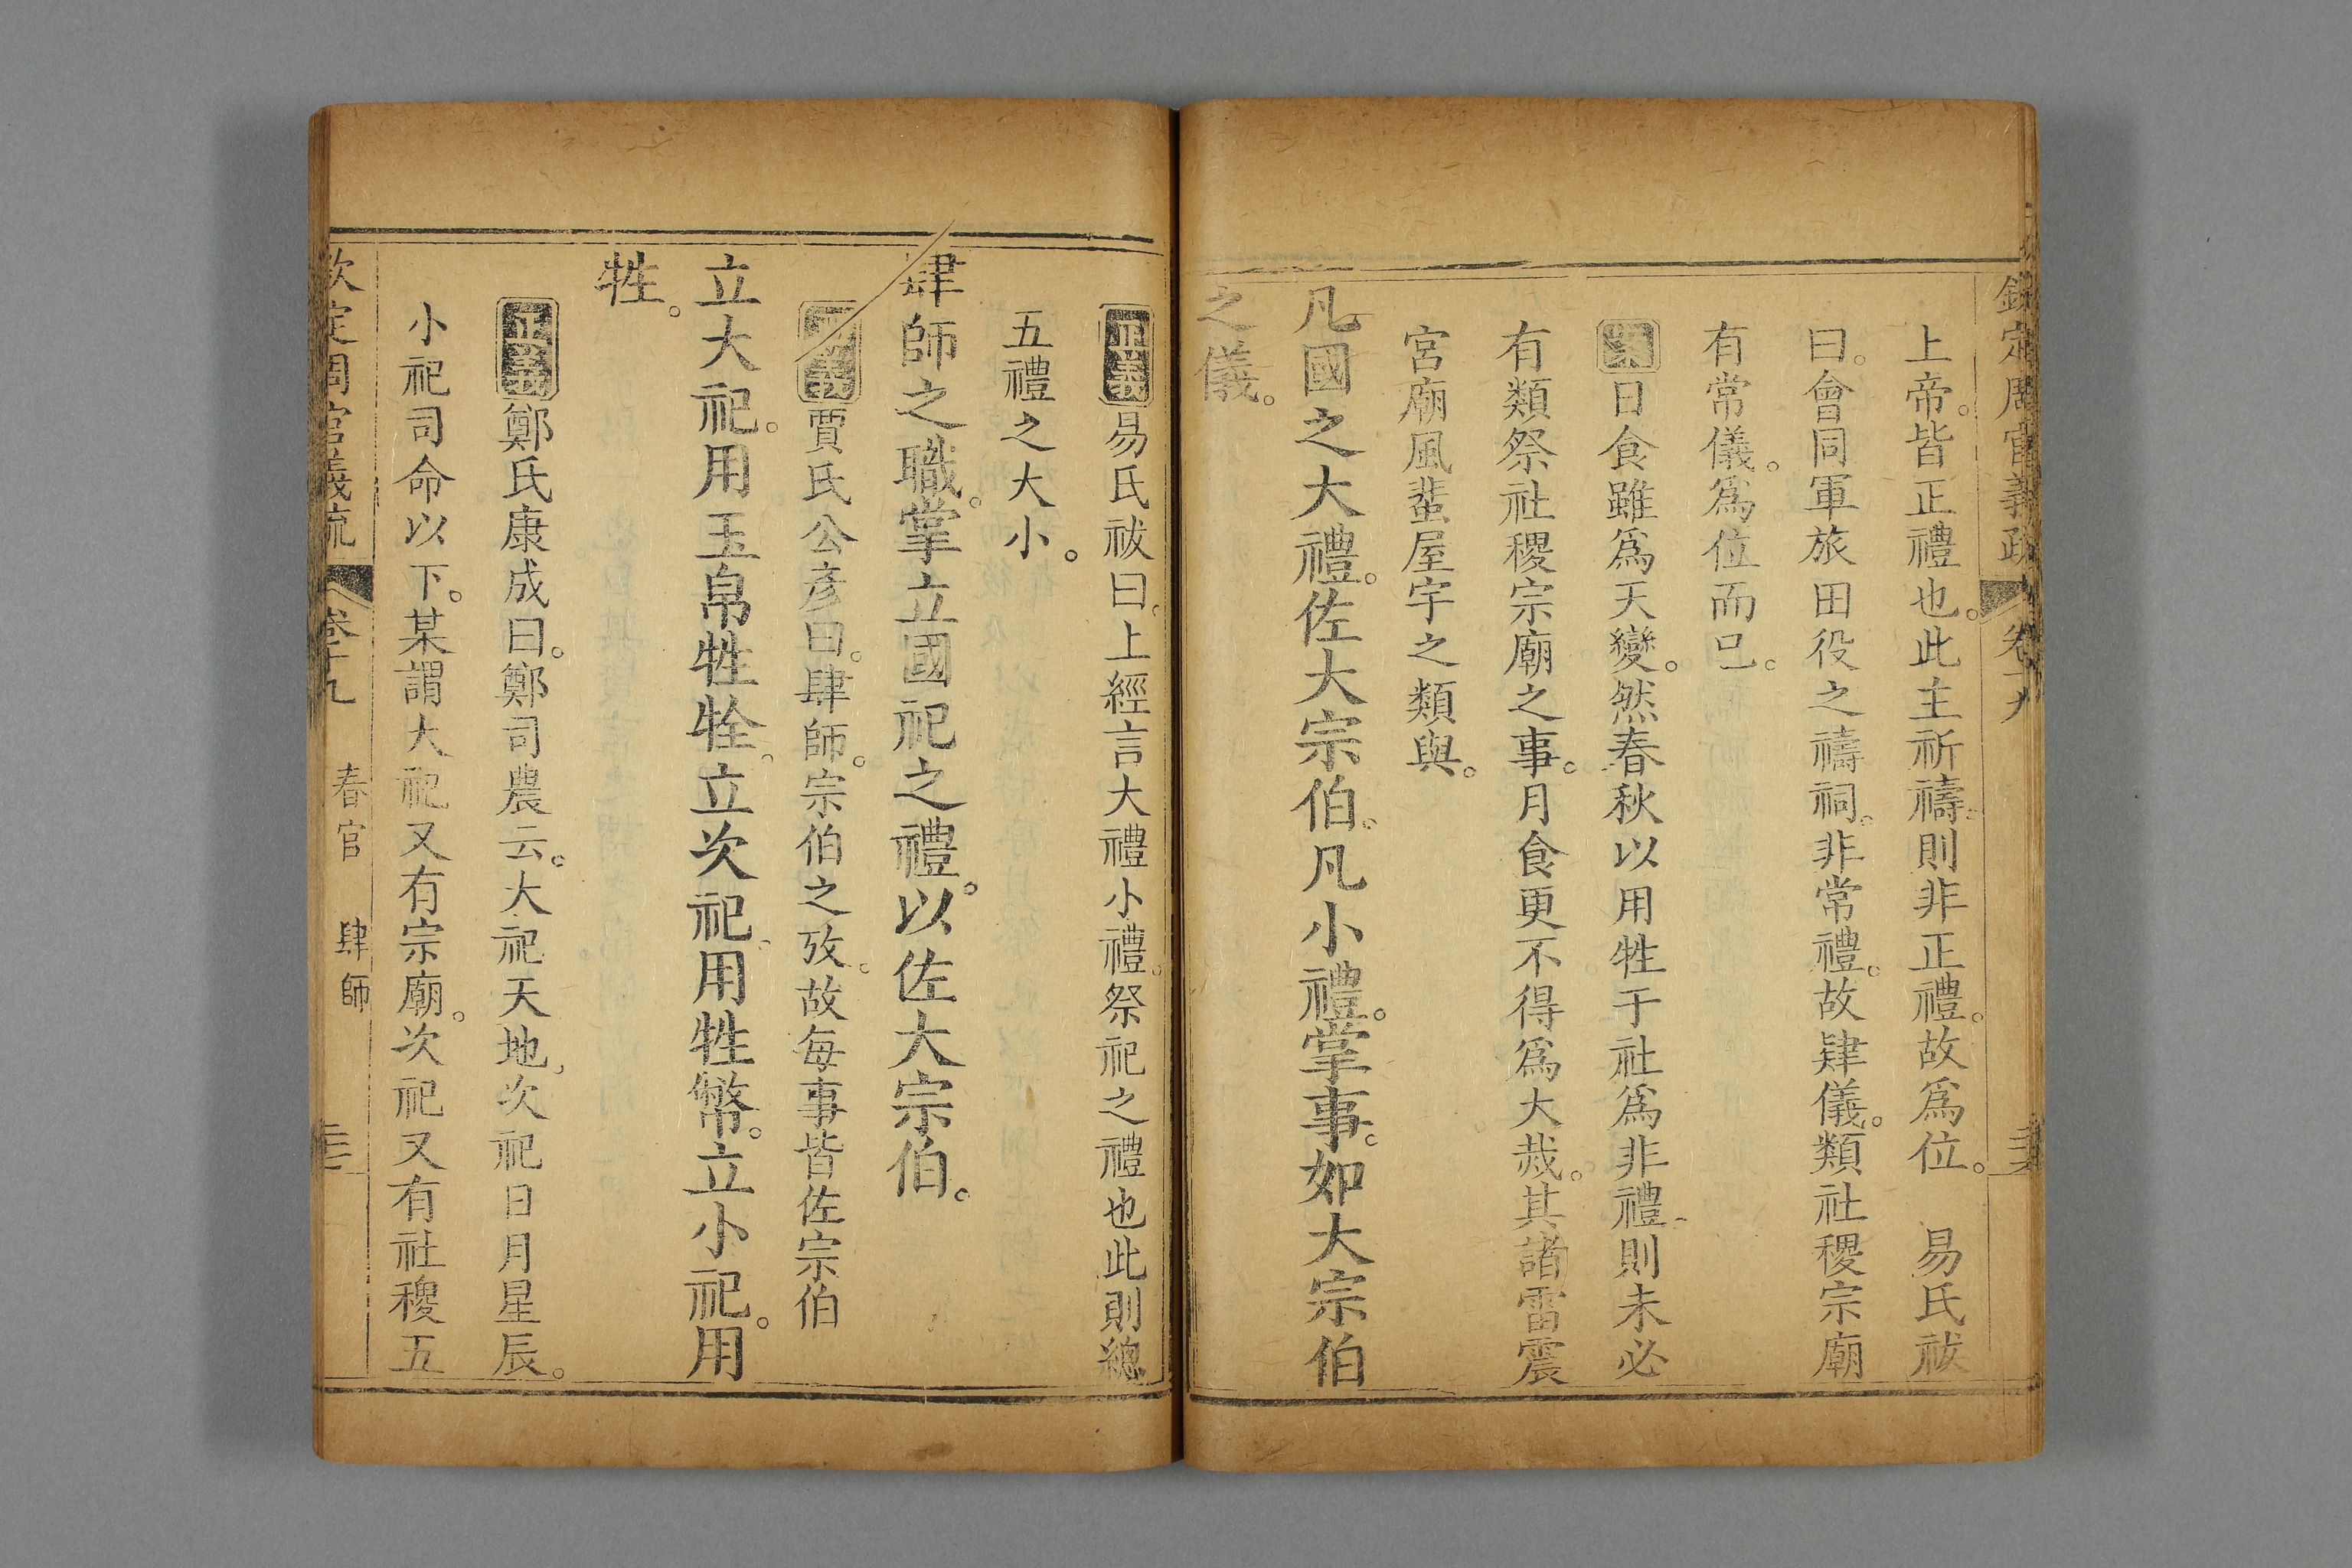 欽定周官義疏 卷十九
上帝。皆正禮也。此主祈禱。則非正禮。故爲位。 易氏祓
曰。會同軍旅田役之禱祠。非常禮。故肄儀。類社稷宗廟
有常儀。爲位而已。
案日食雖爲天變。然春秋以用牲于社爲非禮。則未必
有類祭社稷宗廟之事。月食更不得爲大烖。其諸雷震
宮廟風蜚屋宇之類與。
凡國之大禮。佐大宗伯。凡小禮。掌事。如大宗伯
之儀。
正義易氏祓曰。上經言大禮小禮。祭祀之禮也此則總
五禮之大小。
肆師之職。掌立國祀之禮。以佐大宗伯。
正義賈氏公彥曰。肆師。宗伯之攷。故每事皆佐宗伯
立大祀。用玉帛牲牷。立次祀。用牲幣。立小祀。用
牲。
正義鄭氏康成曰。鄭司農云。大祀天地。次祀日月星辰。
小祀司命以下。某謂大祀又有宗廟。次祀又有社稷五
欽定周官義疏 卷十九 春官 肆師